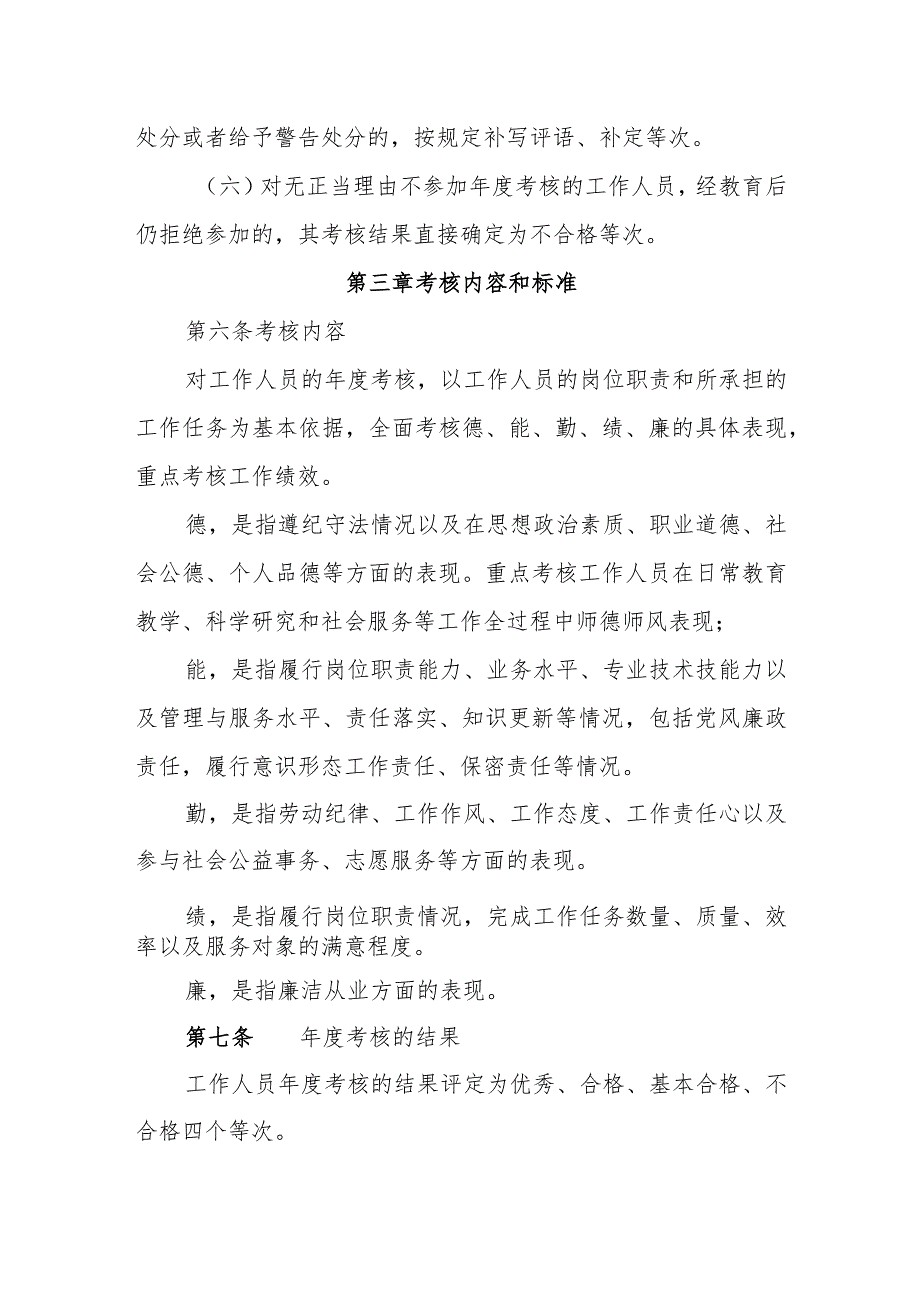 处分或者给予警告处分的，按规定补写评语、补定等次。
（六）对无正当理由不参加年度考核的工作人员，经教育后
仍拒绝参加的，其考核结果直接确定为不合格等次。
第三章考核内容和标准
第六条考核内容
对工作人员的年度考核，以工作人员的岗位职责和所承担的
工作任务为基本依据，全面考核德、能、勤、绩、廉的具体表现，
重点考核工作绩效。
德，是指遵纪守法情况以及在思想政治素质、职业道德、社
会公德、个人品德等方面的表现。重点考核工作人员在日常教育
教学、科学研究和社会服务等工作全过程中师德师风表现；
能，是指履行岗位职责能力、业务水平、专业技术技能力以
及管理与服务水平、责任落实、知识更新等情况，包括党风廉政
责任，履行意识形态工作责任、保密责任等情况。
勤，是指劳动纪律、工作作风、工作态度、工作责任心以及
参与社会公益事务、志愿服务等方面的表现。
绩，是指履行岗位职责情况，完成工作任务数量、质量、效
率以及服务对象的满意程度。
廉，是指廉洁从业方面的表现。
第七条　　年度考核的结果
工作人员年度考核的结果评定为优秀、合格、基本合格、不
合格四个等次。